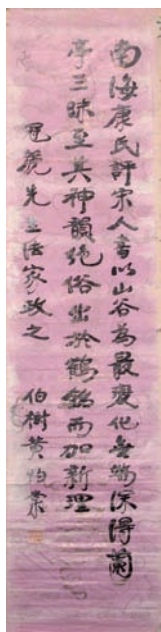 南海康氏評宋人書以山谷為最變化無端深得蘭
亭三昧至其神韻絕俗出於鶴銘而加新理
先生法家政之
伯樹黃